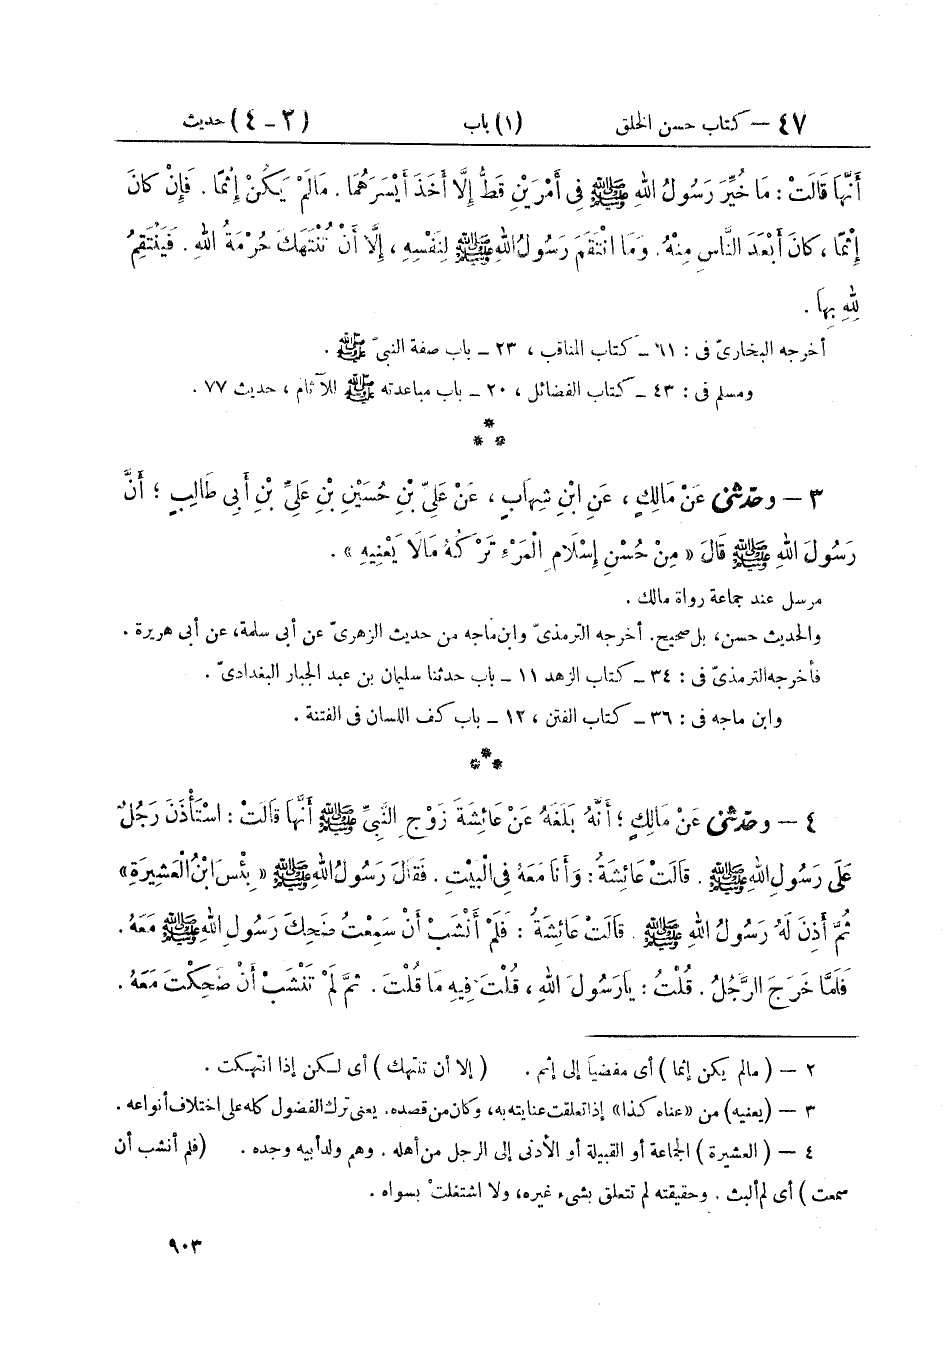 ٤٧ – كتاب حسن الخلق (١) باب (٣ – ٤) حديث
أَنَّهَا قَالَتْ : مَا خُيِّرَ رَسُولُ اللهِ ﷺ فِى أَمْرَيْنِ قَطُّ إِلَّا أَخَذَ أَيْسَرَهُمَا . مَالَمْ يَكُنْ إِثْمًا . فَإِنْ كَانَ
إِثْمًا ، كَانَ أَبْعَدَ النَّاسِ مِنْهُ . وَمَا انْتَقَمَ رَسُولُ اللهِ ﷺ لِنَفْسِهِ ، إِلَّا أَنْ تُنْتَهَكَ حُرْمَةُ اللهِ . فَيَنْتَقِمُ
لِلهِ بِهَا .
أخرجه البخارىّ فى : ٦١ – كتاب المناقب ، ٢٣ – باب صفة النبىّ ﷺ .
ومسلم فى : ٤٣ – كتاب الفضائل ، ٢٠ – باب مباعدته ﷺ للآثام ، حديث ٧٧ .
*
* *
٣ – وحدّثنى عَنْ مَالِكٍ ، عَنِ ابْنِ شِهَابٍ ، عَنْ عَلِىِّ بْنِ حُسَيْنِ بْنِ عَلِىِّ بْنِ أَبِى طَالِبٍ ؛ أَنَّ
رَسُولَ اللهِ ﷺ قَالَ « مِنْ حُسْنِ إِسْلَامِ الْمَرْءِ تَرْكُهُ مَالَا يَعْنِيهِ » .
مرسل عند جماعة رواة مالك .
والحديث حسن، بل صحيح. أخرجه الترمذىّ وابن ماجه من حديث الزهرىّ عن أبى سلمة، عن أبى هريرة .
فأخرجه الترمذىّ فى : ٣٤ – كتاب الزهد ١١ – باب حدثنا سليمان بن عبد الجبار البغدادىّ .
وابن ماجه فى : ٣٦ – كتاب الفتن ، ١٢ – باب كف اللسان فى الفتنة .
*
* *
٤ – وحدّثنى عَنْ مَالِكٍ ؛ أَنَّهُ بَلَغَهُ عَنْ عَائِشَةَ زَوْجِ النَّبِىِّ ﷺ أَنَّهَا قَالَتْ : اسْتَأْذَنَ رَجُلٌ
عَلَى رَسُولِ اللهِ ﷺ . قَالَتْ عَائِشَةُ : وَأَنَا مَعَهُ فِى الْبَيْتِ . فَقَالَ رَسُولُ اللهِ ﷺ « بِئْسَ ابْنُ الْعَشِيرَةِ »
ثُمَّ أَذِنَ لَهُ رَسُولُ اللهِ ﷺ . قَالَتْ عَائِشَةُ : فَلَمْ أَنْشَبْ أَنْ سَمِعْتُ ضَحِكَ رَسُولِ اللهِ ﷺ مَعَهُ .
فَلَمَّا خَرَجَ الرَّجُلُ . قُلْتُ : يَارَسُولَ اللهِ ، قُلْتَ فِيهِ مَا قُلْتَ . ثُمَّ لَمْ تَنْشَبْ أَنْ ضَحِكْتَ مَعَهُ .
٢ – ( مالم يكن إثما ) أى مفضيا إلى إثم . ( إلا أن تنتهك ) أى لكن إذا انتهكت .
٣ – (يعنيه) من «عناه كذا» إذا تعلقت عنايته به، وكان من قصده. يعنى ترك الفضول كله على اختلاف أنواعه .
٤ – ( العشيرة ) الجماعة أو القبيلة أو الأدنى إلى الرجل من أهله . وهم ولد أبيه وجده . (فلم أنشب أن
سمعت ) أى لم ألبث . وحقيقته لم تتعلق بشىء غيره، ولا اشتغلتْ بسواه .
٩٠٣